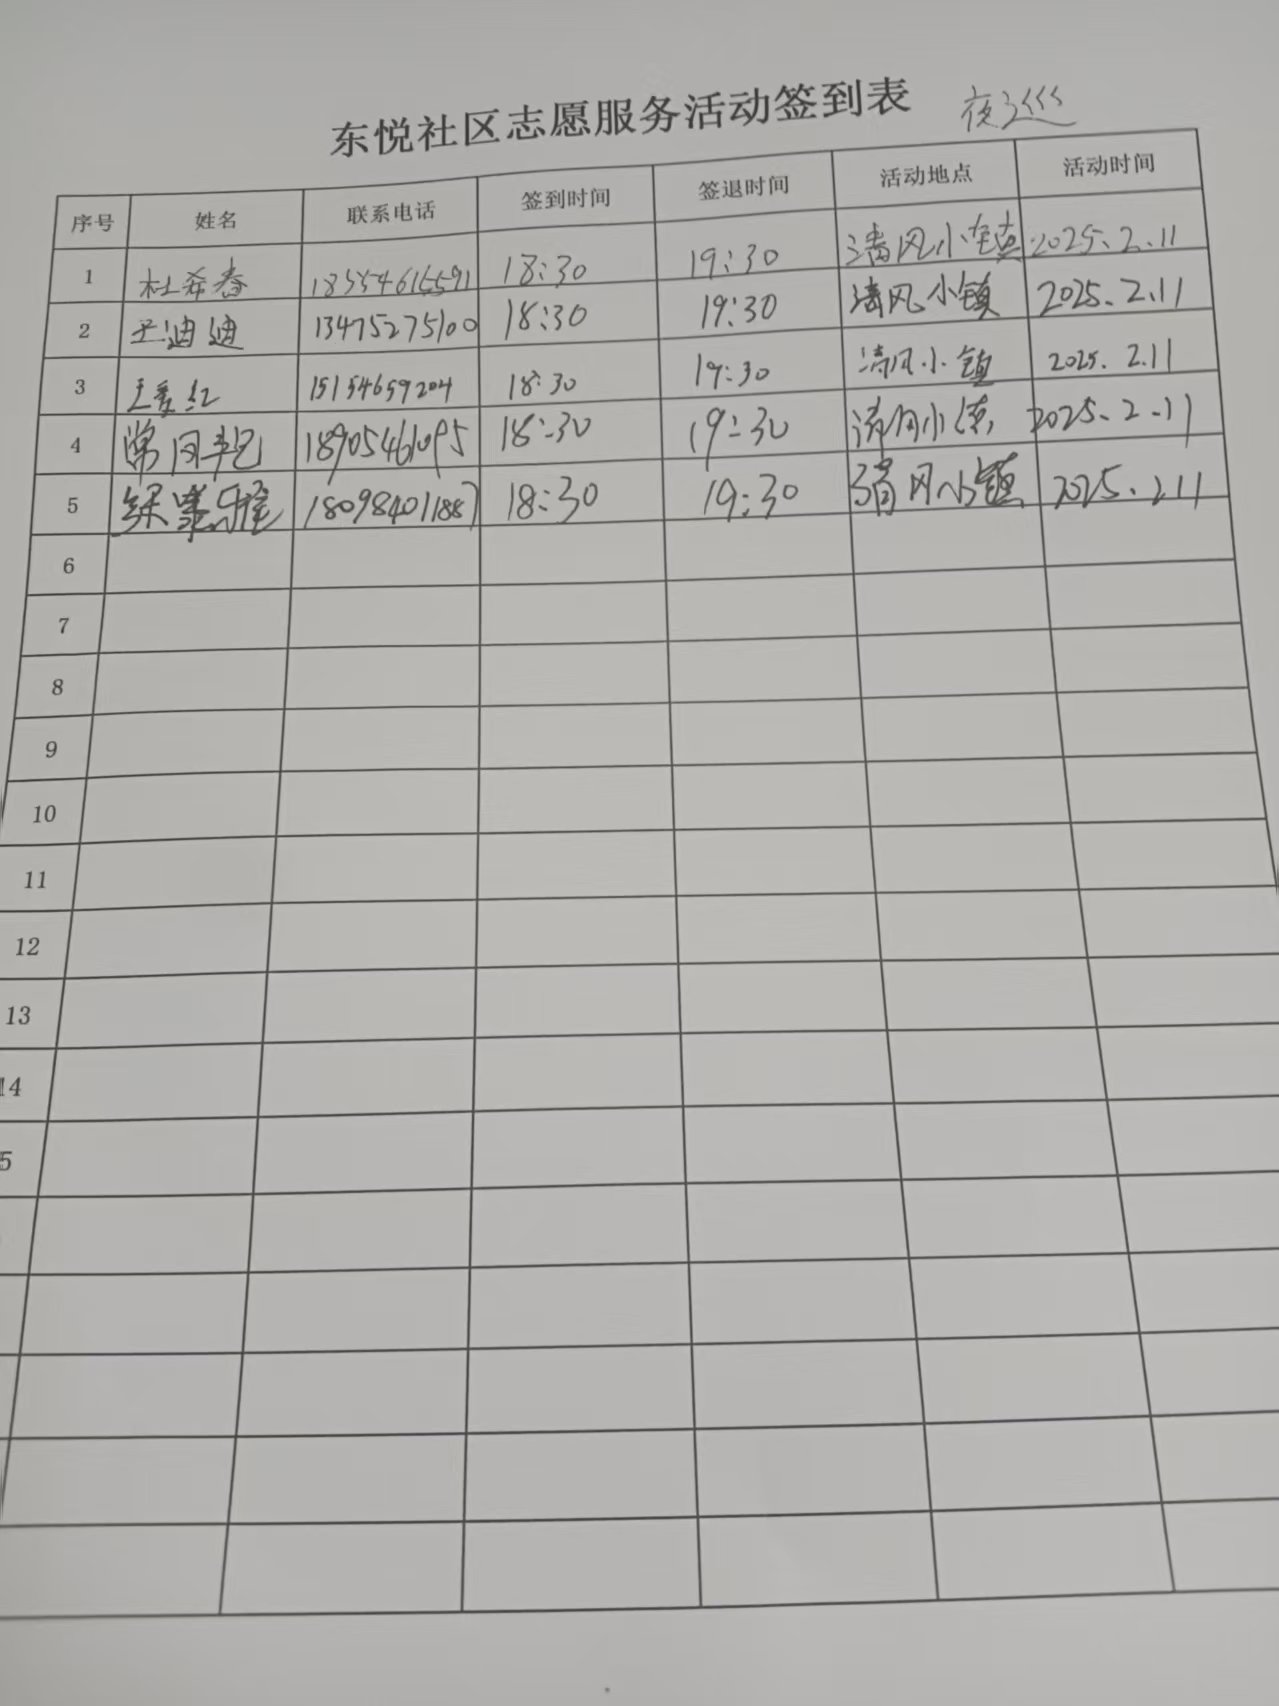 东悦社区志愿服务活动签到表 夜巡
序号 姓名 联系电话 签到时间 签退时间 活动地点 活动时间
1 杜希春 18:30 19:30 清风小镇 2025.2.11
2 王迪迪 13475275100 18:30 19:30 清风小镇 2025.2.11
3 王爱红 15154659204 18:30 19:30 清风小镇 2025.2.11
4 18905461095 18:30 19:30 清风小镇 2025.2.11
5 18098401188 18:30 19:30 清风小镇 2025.2.11
6
7
8
9
10
11
12
13
14
5